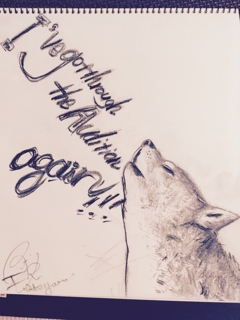 I've got through
the Audition
again!!!